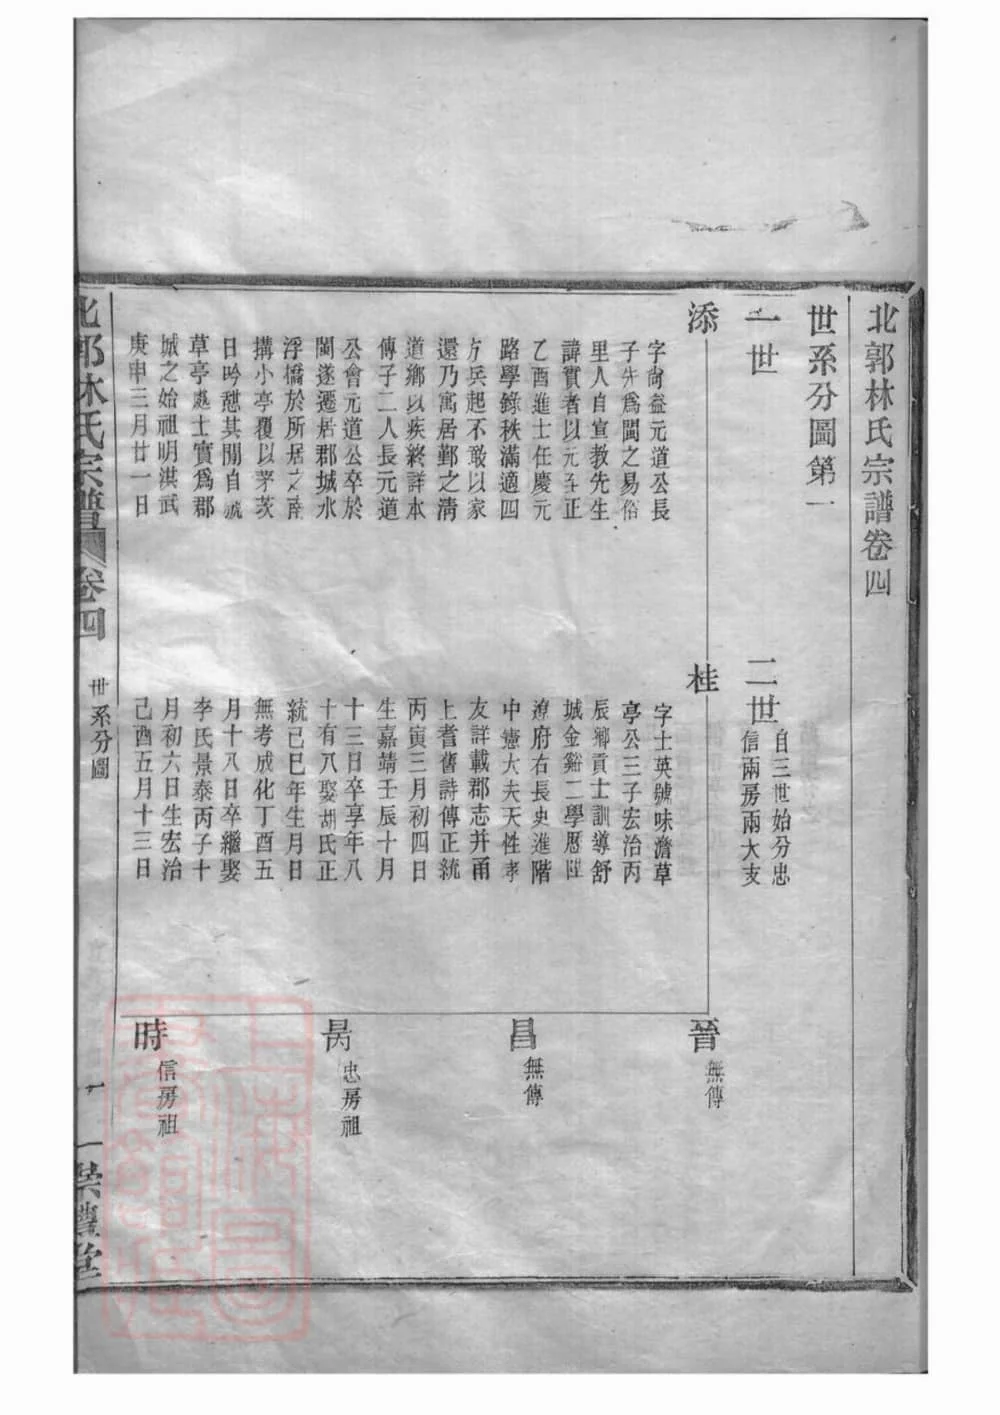 北郭林氏宗譜卷四
世系分圖第一
一世
二世
自三世始分忠
信兩房兩大支
添
字尙益元道公長
子先爲閩之易俗
里人自宣教先生
諱實者以元至正
乙酉進士任慶元
路學錄秩滿適四
方兵起不敢以家
還乃寓居鄞之清
道鄉以疾終詳本
傳子二人長元道
公會元道公卒於
閩遂遷居郡城水
浮橋於所居之南
搆小亭覆以茅茨
日吟憩其間自號
草亭處士實爲郡
城之始祖明洪武
庚申三月廿一日
桂
字士英號味澹草
亭公三子宏治丙
辰鄉貢士訓導舒
城金谿二學歷陞
遼府右長史進階
中憲大夫天性孝
友詳載郡志并甬
上耆舊詩傳正統
丙寅三月初四日
生嘉靖壬辰十月
十三日卒享年八
十有八娶胡氏正
統己巳年生月日
無考成化丁酉五
月十八日卒繼娶
李氏景泰丙子十
月初六日生宏治
己酉五月十三日
晉
無傳
昌
無傳
昺
忠房祖
時
信房祖
北郭林氏宗譜
卷四
世系分圖
一
崇豐堂